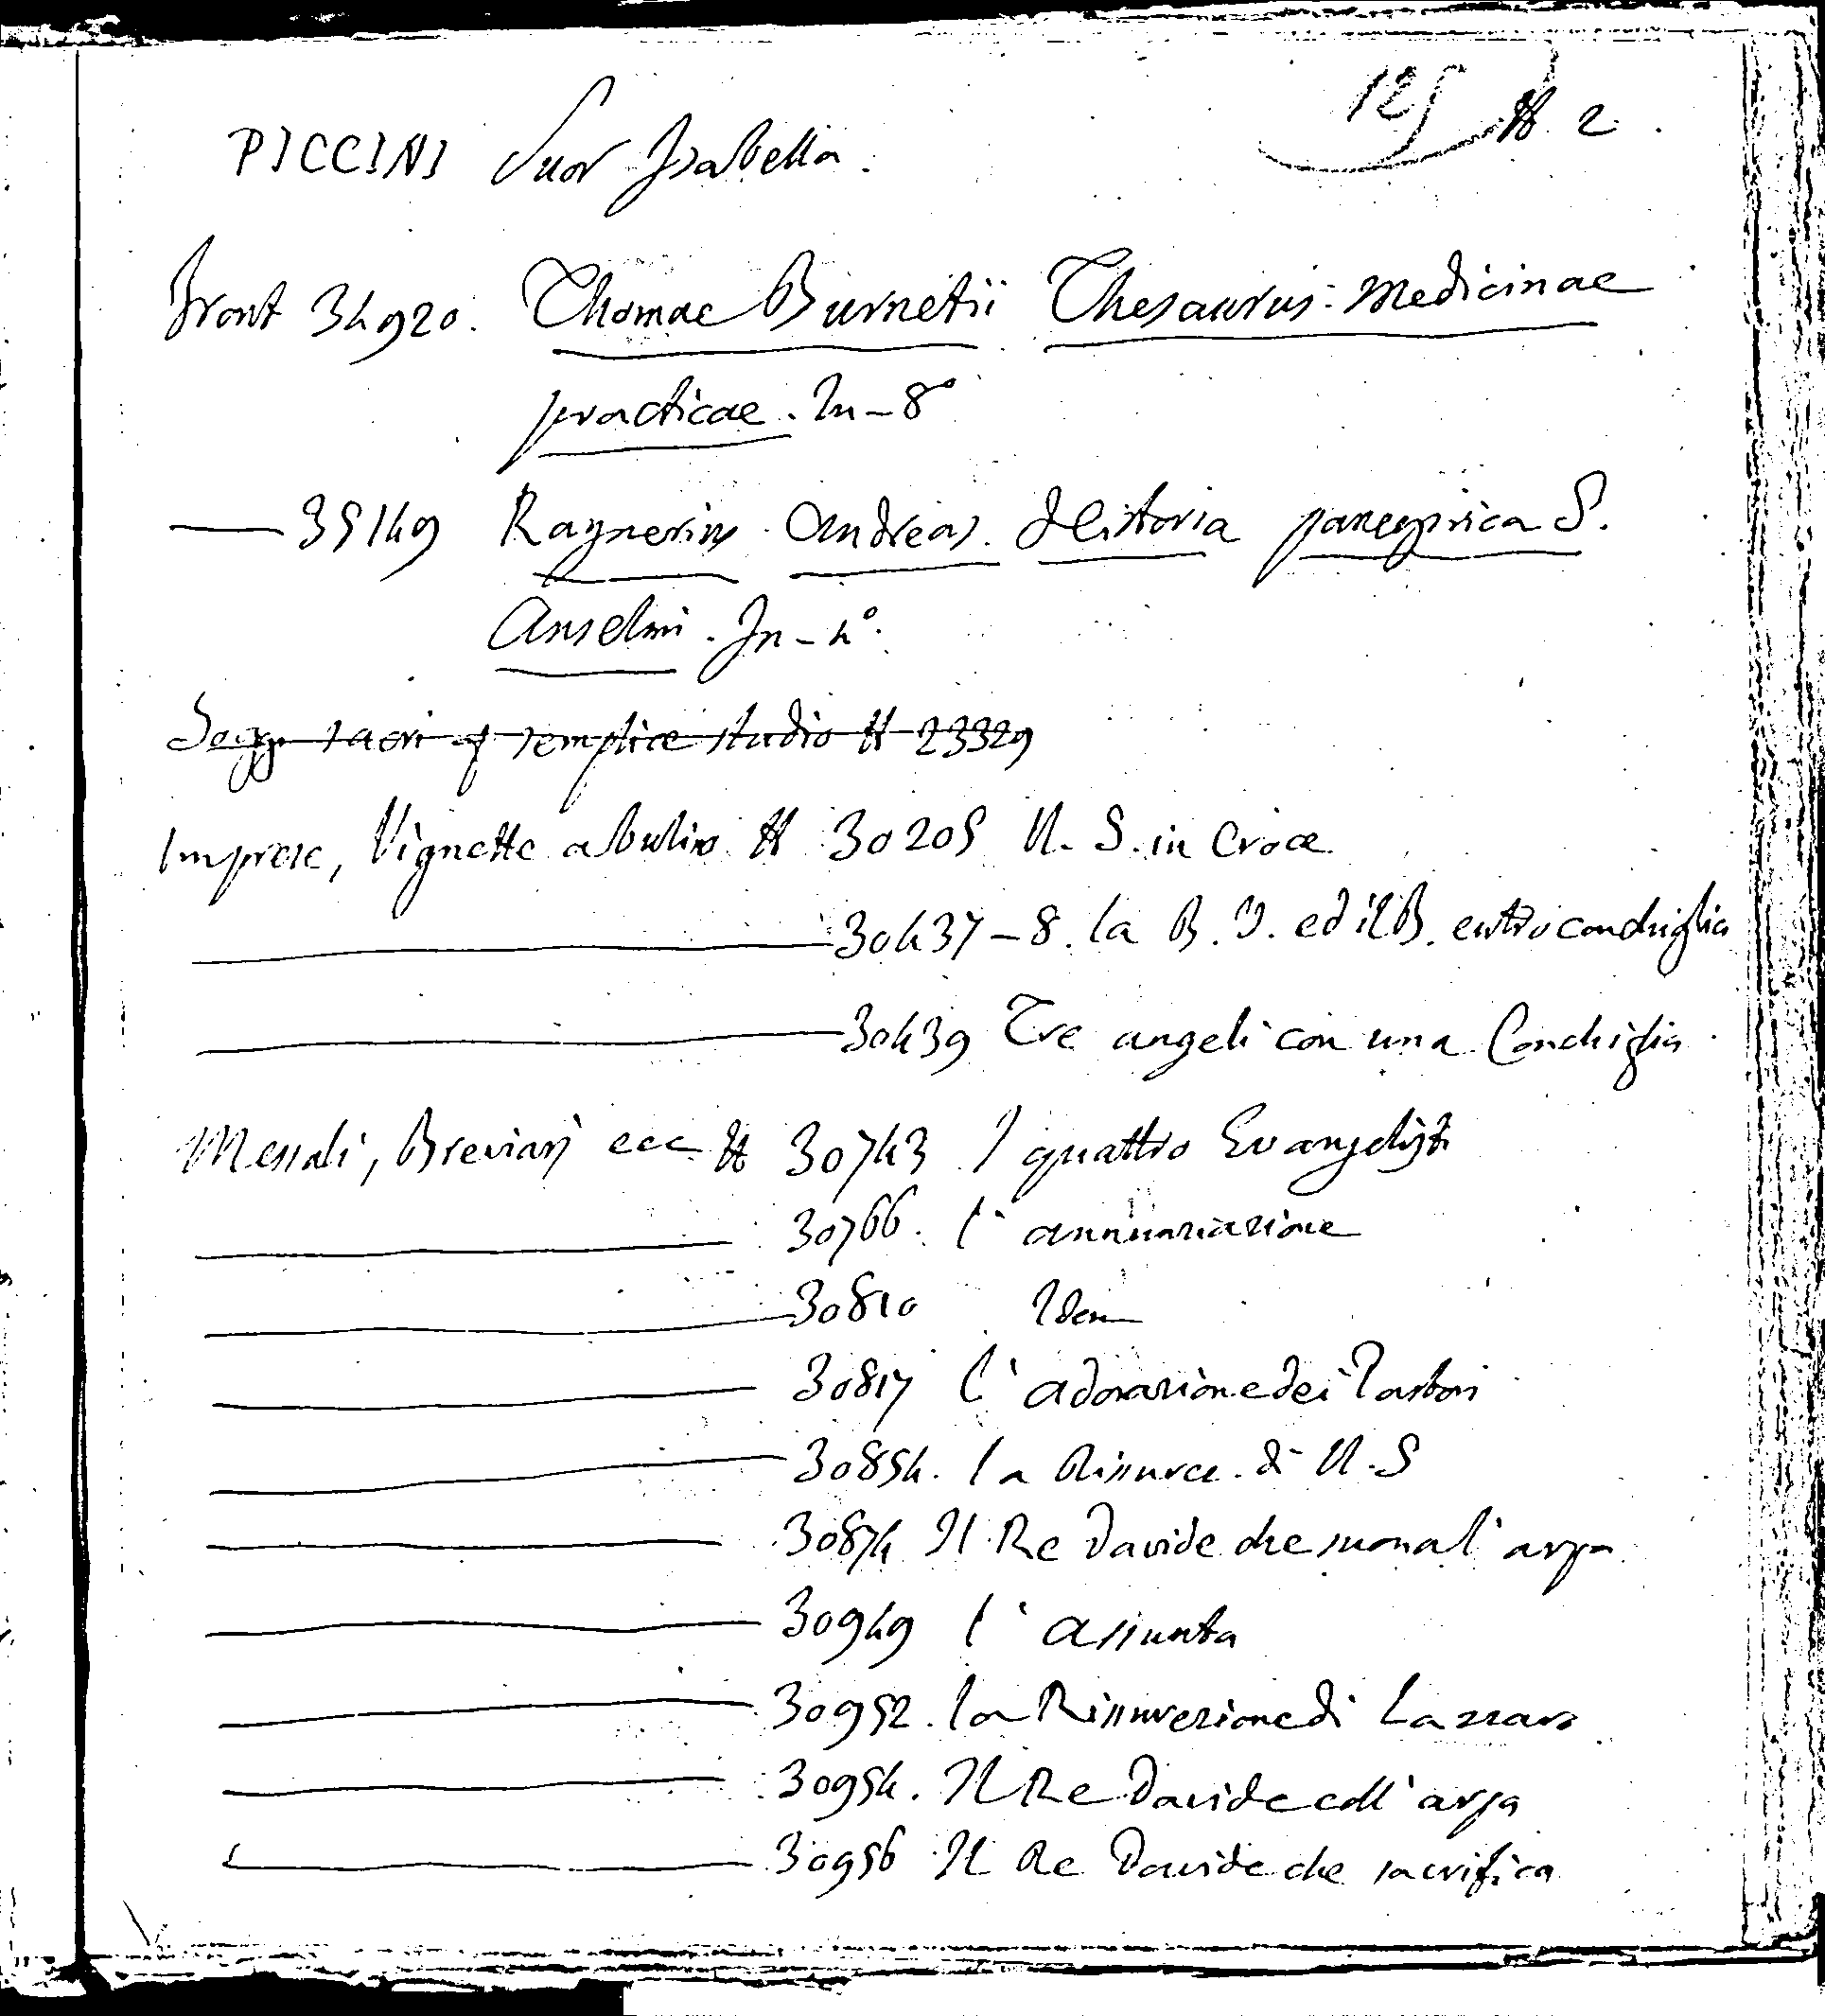 125 # 2.
PICCINI Suor Isabella.
Front 34920. Thomae Burnetii Thesaurus Medicinae
practicae. In-8°
—— 35149 Raynerius Andreas. Historia panegirica S.
Anselmi. In-4°.
Sogg. sacri di semplice studio # 23329
Imprese, Vignette # 30205 N. S. in Croce
—— 30437-8. la B. V. ed il B. entro conchiglia
—— 30439 Tre angeli con una Conchiglia.
Messali, Breviarj ecc # 30743 I quattro Evangelisti
—— 30766. l'annunziazione
—— 30810 Idem
—— 30817 l'adorazione dei Pastori
—— 30854. la Rissurez. di N. S
—— 30874 Il Re Davide che suona l'arpa
—— 30949 l'assunta
—— 30952. la Rissurezione di Lazzaro
—— 30954. Il Re Davide coll'arpa
—— 30956 Il Re Davide che sacrifica